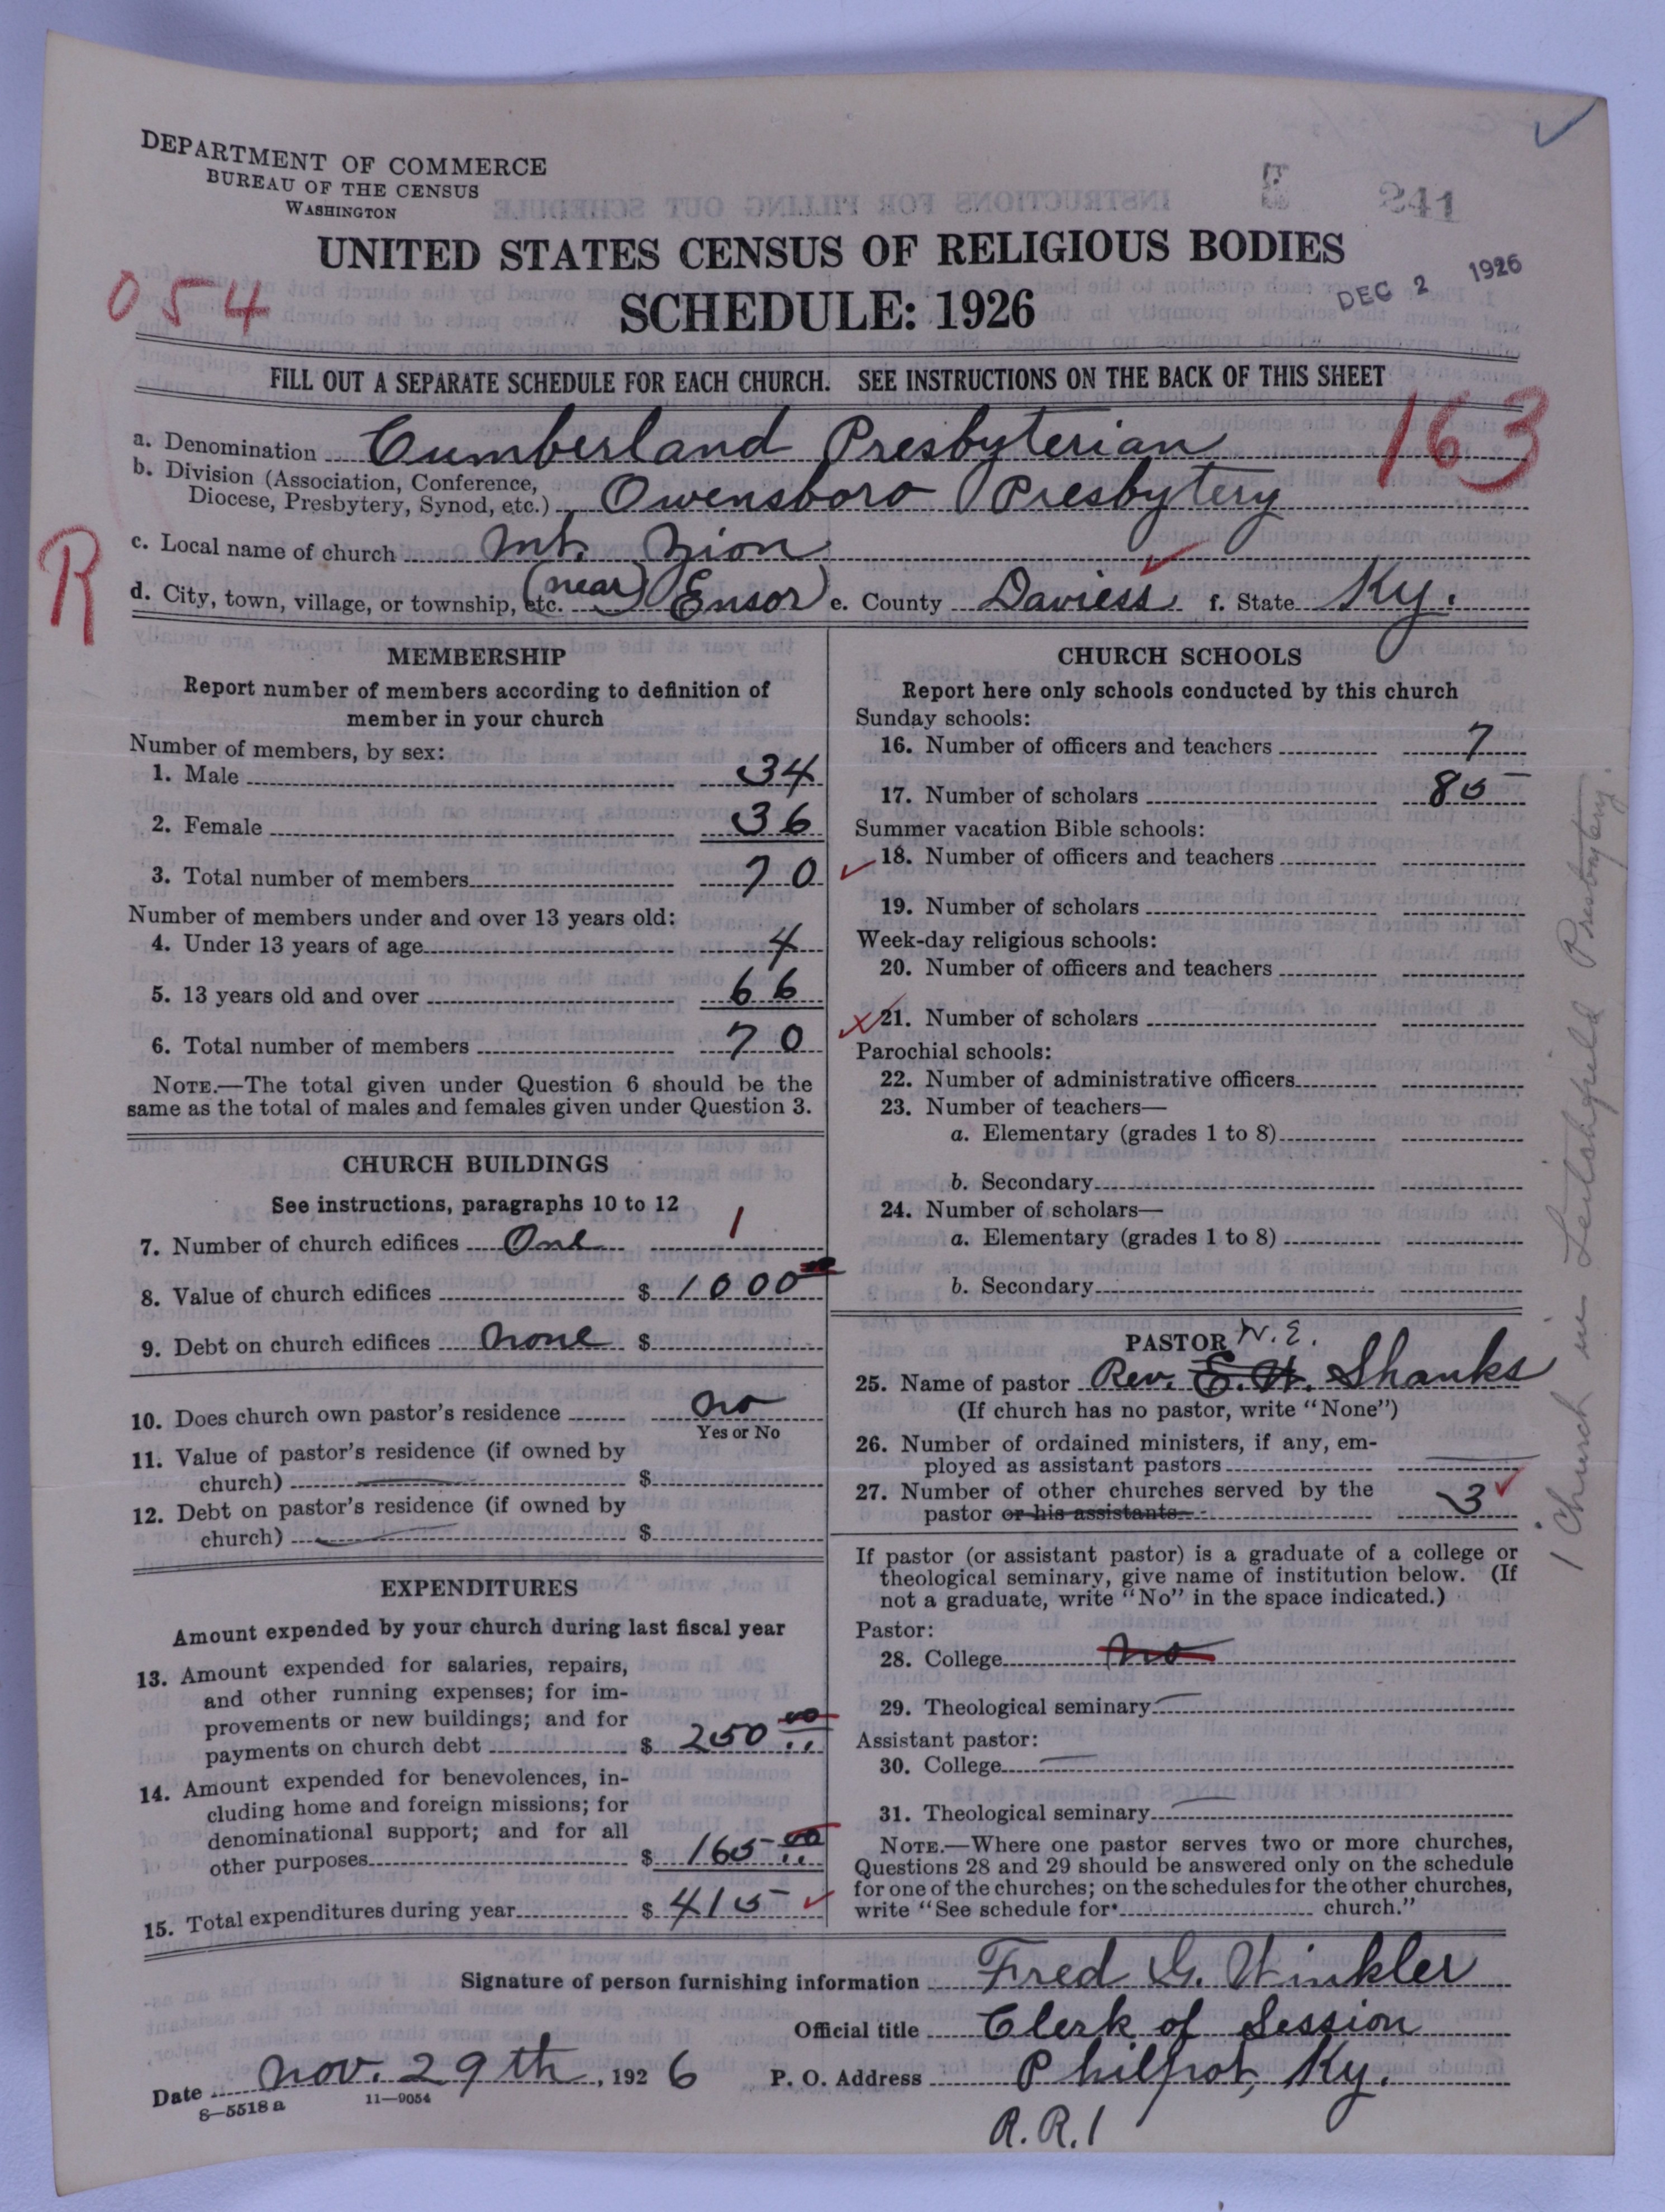 DEPARTMENT OF COMMERCE
BUREAU OF THE CENSUS
WASHINGTON
241
UNITED STATES CENSUS OF RELIGIOUS BODIES
SCHEDULE: 1926
DEC 2 1926
054
FILL OUT A SEPARATE SCHEDULE FOR EACH CHURCH. SEE INSTRUCTIONS ON THE BACK OF THIS SHEET
163
a. Denomination Cumberland Presbyterian
b. Division (Association, Conference,
Diocese, Presbytery, Synod, etc.) Owensboro Presbytery
R
c. Local name of church Mt. Zion
d. City, town, village, or township, etc. (near) Ensor e. County Daviess f. State Ky.
MEMBERSHIP
Report number of members according to definition of
member in your church
Number of members, by sex:
1. Male 34
2. Female 36
3. Total number of members 70
Number of members under and over 13 years old:
4. Under 13 years of age 4
5. 13 years old and over 66
6. Total number of members 70
NOTE.—The total given under Question 6 should be the
same as the total of males and females given under Question 3.
CHURCH BUILDINGS
See instructions, paragraphs 10 to 12
7. Number of church edifices One 1
8. Value of church edifices $ 1000 00
9. Debt on church edifices none $
10. Does church own pastor's residence no
Yes or No
11. Value of pastor's residence (if owned by
church) $
12. Debt on pastor's residence (if owned by
church) $
EXPENDITURES
Amount expended by your church during last fiscal year
13. Amount expended for salaries, repairs,
and other running expenses; for im-
provements or new buildings; and for
payments on church debt $ 250 00
14. Amount expended for benevolences, in-
cluding home and foreign missions; for
denominational support; and for all
other purposes $ 165 00
15. Total expenditures during year $ 415
CHURCH SCHOOLS
Report here only schools conducted by this church
Sunday schools:
16. Number of officers and teachers 7
17. Number of scholars 85
Summer vacation Bible schools:
18. Number of officers and teachers
19. Number of scholars
Week-day religious schools:
20. Number of officers and teachers
21. Number of scholars
Parochial schools:
22. Number of administrative officers
23. Number of teachers—
a. Elementary (grades 1 to 8)
b. Secondary
24. Number of scholars—
a. Elementary (grades 1 to 8)
b. Secondary
PASTOR
N. E.
25. Name of pastor Rev. E. H. Shanks
(If church has no pastor, write "None")
26. Number of ordained ministers, if any, em-
ployed as assistant pastors
27. Number of other churches served by the
pastor or his assistants 3
If pastor (or assistant pastor) is a graduate of a college or
theological seminary, give name of institution below. (If
not a graduate, write "No" in the space indicated.)
Pastor:
28. College no
29. Theological seminary
Assistant pastor:
30. College
31. Theological seminary
NOTE.—Where one pastor serves two or more churches,
Questions 28 and 29 should be answered only on the schedule
for one of the churches; on the schedules for the other churches,
write "See schedule for church."
1 Church in Leitchfield Presbytery.
Signature of person furnishing information Fred G. Winkler
Official title Clerk of Session
Date Nov. 29th, 1926 P. O. Address Philpot, Ky.
8—5518a 11—9054
R.R.1